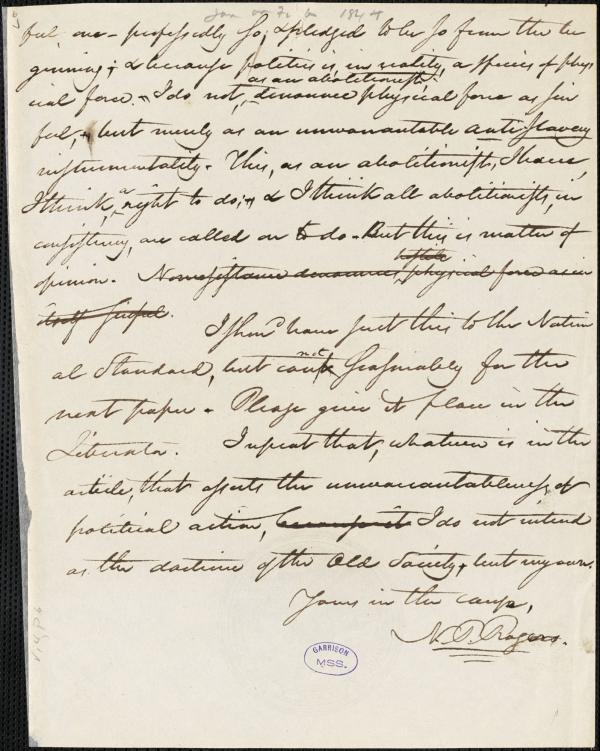 Jan or Feb 1844
ful one - professedly so, & pledged to be so from the be
ginning; & because politics is, in reality, a species of phys
as an abolitionist,
ical force. - I do not, denounce physical force as sin
ful, - but merely as an unwarrantable anti slavery
instrumentality - This, as an abolitionist, I have,
I think, a right to do; - & I think all abolitionists, in
consistency, are called on to do - But this is matter of
opinion. Nonresistance denounces physical force as in
itself sinful.
I shou'd have sent this to the Nation
al Standard, but can not seasonably for the
next paper - Please give it place in the
Liberator. I repeat that, whatever is in the
article, that asserts the unwarrantableness of
political action, I do not intend
as the doctrine of the Old Society, but my own.
Yours in the cause,
N. P. Rogers.
GARRISON
MSS.